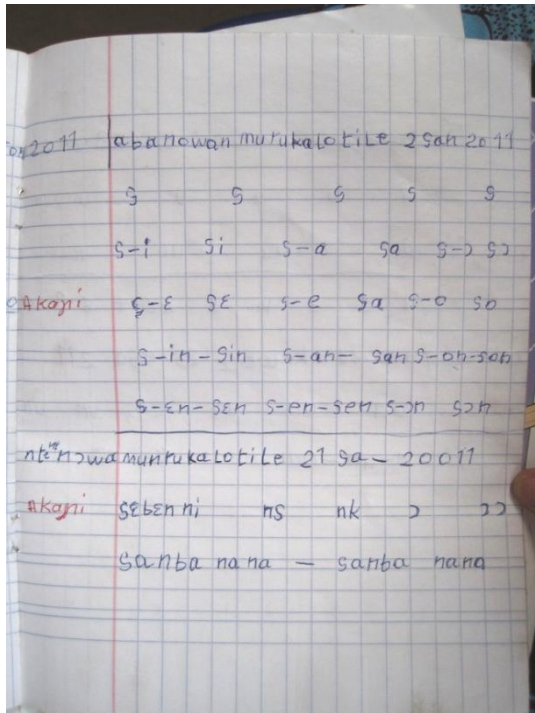 2011 abanowan murukalotile 2 san 2011
s s s s s
s-i si s-a sa s-ɔ sɔ
Akaɲi s-ɛ sɛ s-e sa s-o so
s-in-sin s-an- san s-on-son
s-ɛn-sɛn s-en-sen s-ɔn sɔn
murukalotile 21 sa- 20011
Akaɲi ni su nk ɔ
sanba nana - sanba nana